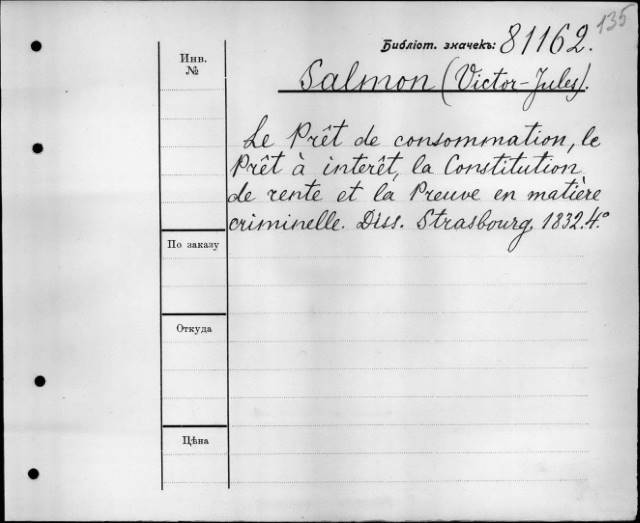 135
Библіот. значекъ: 81162.
Salmon (Victor-Jules).
Инв.
№
Le Prêt de consommation, le
Prêt à interêt, la Constitution
de rente et la Preuve en matière
criminelle. Diss. Strasbourg, 1832. 4.º
По заказу
Откуда
Цѣна